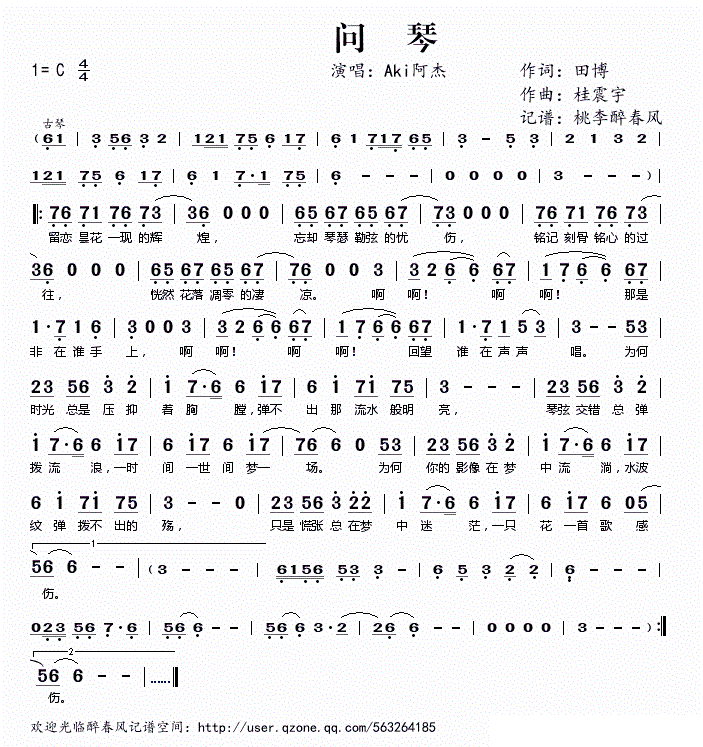 问 琴
1= C 4/4
演唱：Aki阿杰
作词：田博
作曲：桂震宇
记谱：桃李醉春风
古琴
（ 6 1 | 3 56 3 2 | 121 75 6 17 | 6 1 717 65 | 3 - 5 3 | 2 1 3 2 |
121 75 6 17 | 6 1 7·1 75 | 6 - - - | 0 0 0 0 | 3 - - - ）|
‖: 76 71 76 73 | 36 0 0 0 | 65 67 65 67 | 73 0 0 0 | 76 71 76 73 |
留恋 昙花 一现 的辉 煌， 忘却 琴瑟 勒弦 的忧 伤， 铭记 刻骨 铭心 的过
36 0 0 0 | 65 67 65 67 | 76 0 0 3 | 3 2 6 6 67 | 1 76 6 67 |
往， 恍然 花落 凋零 的凄 凉。 啊 啊！ 啊 啊！ 那是
1·7 1 6 | 3 0 0 3 | 3 2 6 6 67 | 1 76 6 67 | 1·7 1 5 3 | 3 - - 53 |
非 在 谁 手 上， 啊 啊！ 啊 啊！ 回望 谁 在 声 声 唱。 为何
23 56 3 2 | 1 7·6 6 17 | 6 1 71 75 | 3 - - 0 | 23 56 3 2 |
时光 总是 压 抑 着 胸 膛，弹不 出 那 流水 般明 亮， 琴弦 交错 总 弹
1 7·6 6 17 | 6 17 6 17 | 76 6 0 53 | 23 56 3 2 | 1 7·6 6 17 |
拨 流 浪，一时 间 一世 间 梦一 场。 为何 你的 影像 在 梦 中 流 淌，水波
6 1 71 75 | 3 - - 0 | 23 56 3 22 | 1 7·6 6 17 | 6 17 6 05 |
纹 弹 拨不 出的 殇， 只是 慌张 总 在梦 中 迷 茫，一只 花 一首 歌 感
1
56 6 - - | （3 - - - | 6156 53 3 - | 6 5 3 2 2 | 6 - - - |
伤。
023 56 7·6 | 56 6 - - | 56 56 3·2 | 26 6 - - | 0 0 0 0 | 3 - - - ）:‖
2
56 6 - - |……‖
伤。
欢迎光临醉春风记谱空间：http://user.qzone.qq.com/563264185